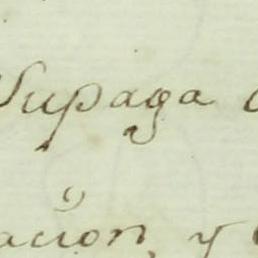 Supaga
acion, y